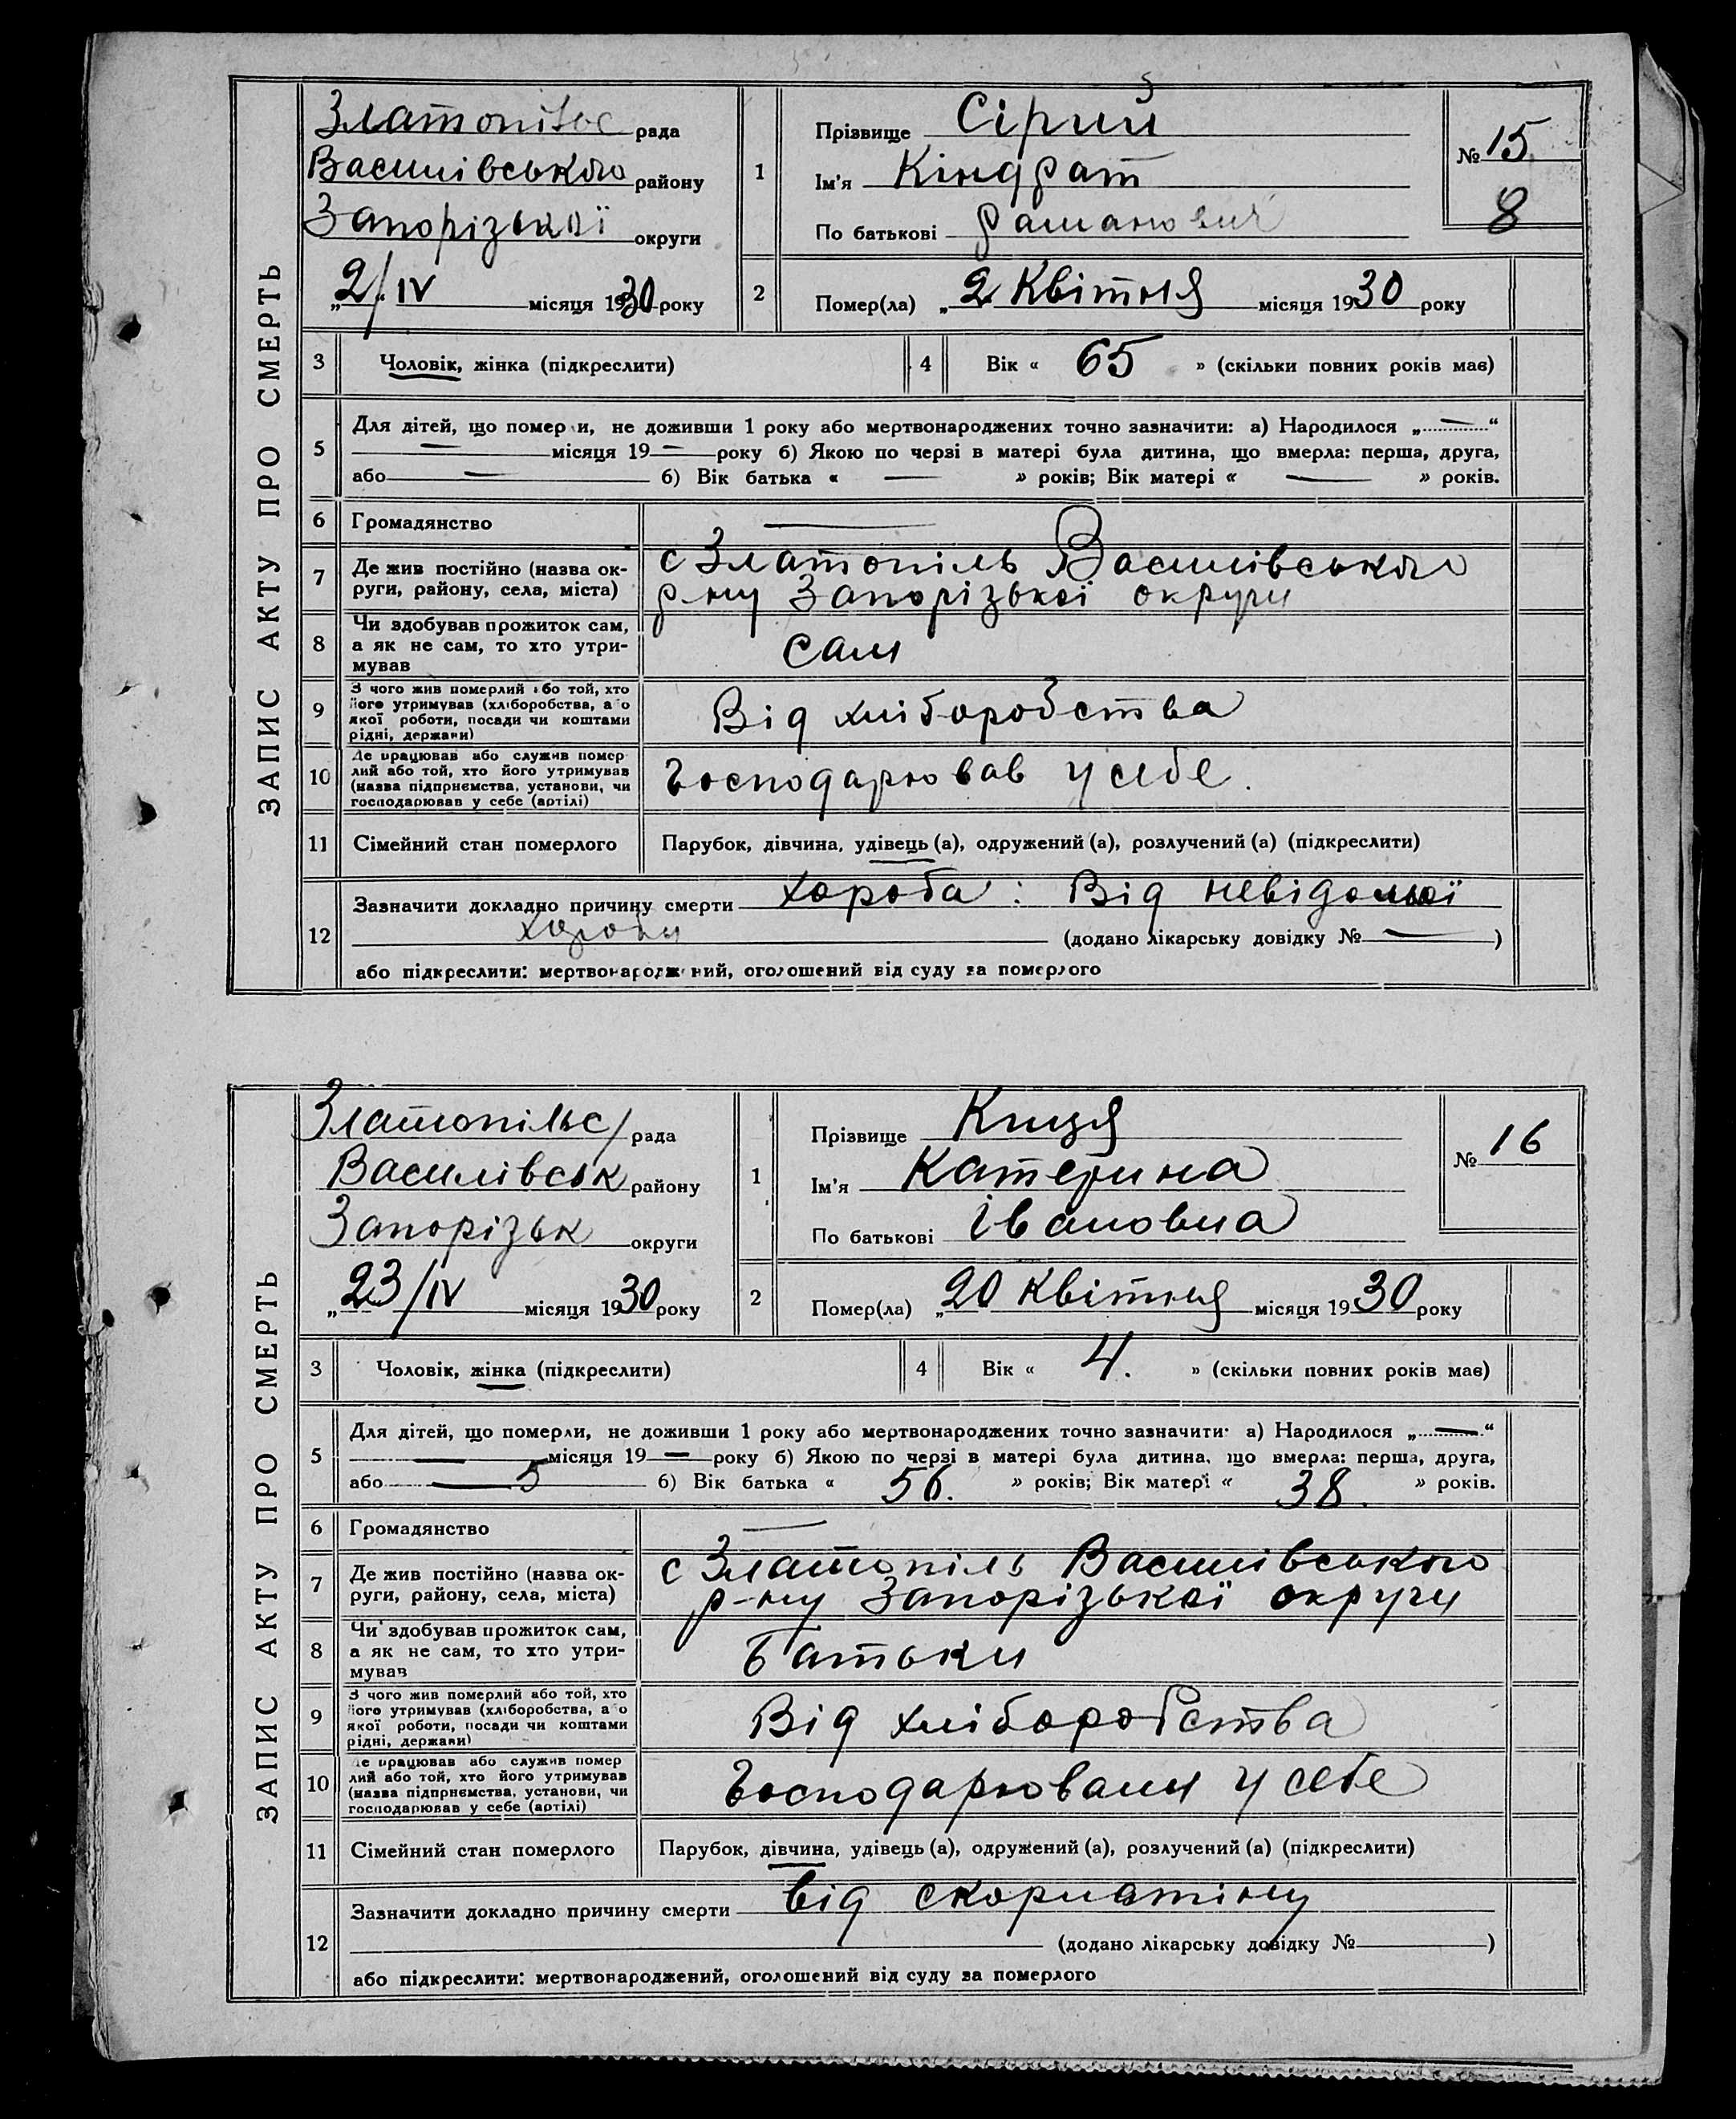 ЗАПИС АКТУ ПРО СМЕРТЬ
Златопільс рада
Василівського району
Запорізької округи
„2/IV місяця 1930 року
1 Прізвище Сірий
Ім'я Кіндрат
По батькові Романович
№ 15
8
2 Помер(ла) „2 Квітня місяця 1930 року
3 Чоловік, жінка (підкреслити)
4 Вік « 65 » (скільки повних років має)
5 Для дітей, що померли, не доживши 1 року або мертвонароджених точно зазначити: а) Народилося „—“
— місяця 19 — року б) Якою по черзі в матері була дитина, що вмерла: перша, друга,
або — б) Вік батька « — » років; Вік матері « — » років.
6 Громадянство —
7 Де жив постійно (назва ок-
руги, району, села, міста)
с Златопіль Василівського
р-ну Запорізької округи
8 Чи здобував прожиток сам,
а як не сам, то хто утри-
мував
сам
9 З чого жив померлий або той, хто
його утримував (хліборобства, або
якої роботи, посади чи коштами
рідні, держави)
Від хліборобства
10 Де працював або служив помер-
лий або той, хто його утримував
(назва підприємства, установи, чи
господарював у себе (артілі)
Господарював у себе.
11 Сімейний стан померлого Парубок, дівчина, удівець (а), одружений (а), розлучений (а) (підкреслити)
12 Зазначити докладно причину смерти хороба: Від невідомої
хороби (додано лікарську довідку № — )
або підкреслити: мертвонароджений, оголошений від суду за померлого
ЗАПИС АКТУ ПРО СМЕРТЬ
Златопільс/ рада
Василівськ району
Запорізьк округи
„23/IV місяця 1930 року
1 Прізвище Книзя
Ім'я Катерина
По батькові Івановна
№ 16
2 Помер(ла) „20 Квітня місяця 1930 року
3 Чоловік, жінка (підкреслити)
4 Вік « 4. » (скільки повних років має)
5 Для дітей, що померли, не доживши 1 року або мертвонароджених точно зазначити: а) Народилося „—“
— місяця 19 — року б) Якою по черзі в матері була дитина, що вмерла: перша, друга,
або — 5 б) Вік батька « 56. » років; Вік матері « 38. » років.
6 Громадянство —
7 Де жив постійно (назва ок-
руги, району, села, міста)
с Златопіль Василівського
р-ну Запорізької округи
8 Чи здобував прожиток сам,
а як не сам, то хто утри-
мував
Батьки
9 З чого жив померлий або той, хто
його утримував (хліборобства, або
якої роботи, посади чи коштами
рідні, держави)
Від хліборобства
10 Де працював або служив помер
лий або той, хто його утримував
(назва підприємства, установи, чи
господарював у себе (артілі)
Господарювали у себе
11 Сімейний стан померлого Парубок, дівчина, удівець (а), одружений (а), розлучений (а) (підкреслити)
12 Зазначити докладно причину смерти від скорлатіну
(додано лікарську довідку № )
або підкреслити: мертвонароджений, оголошений від суду за померлого